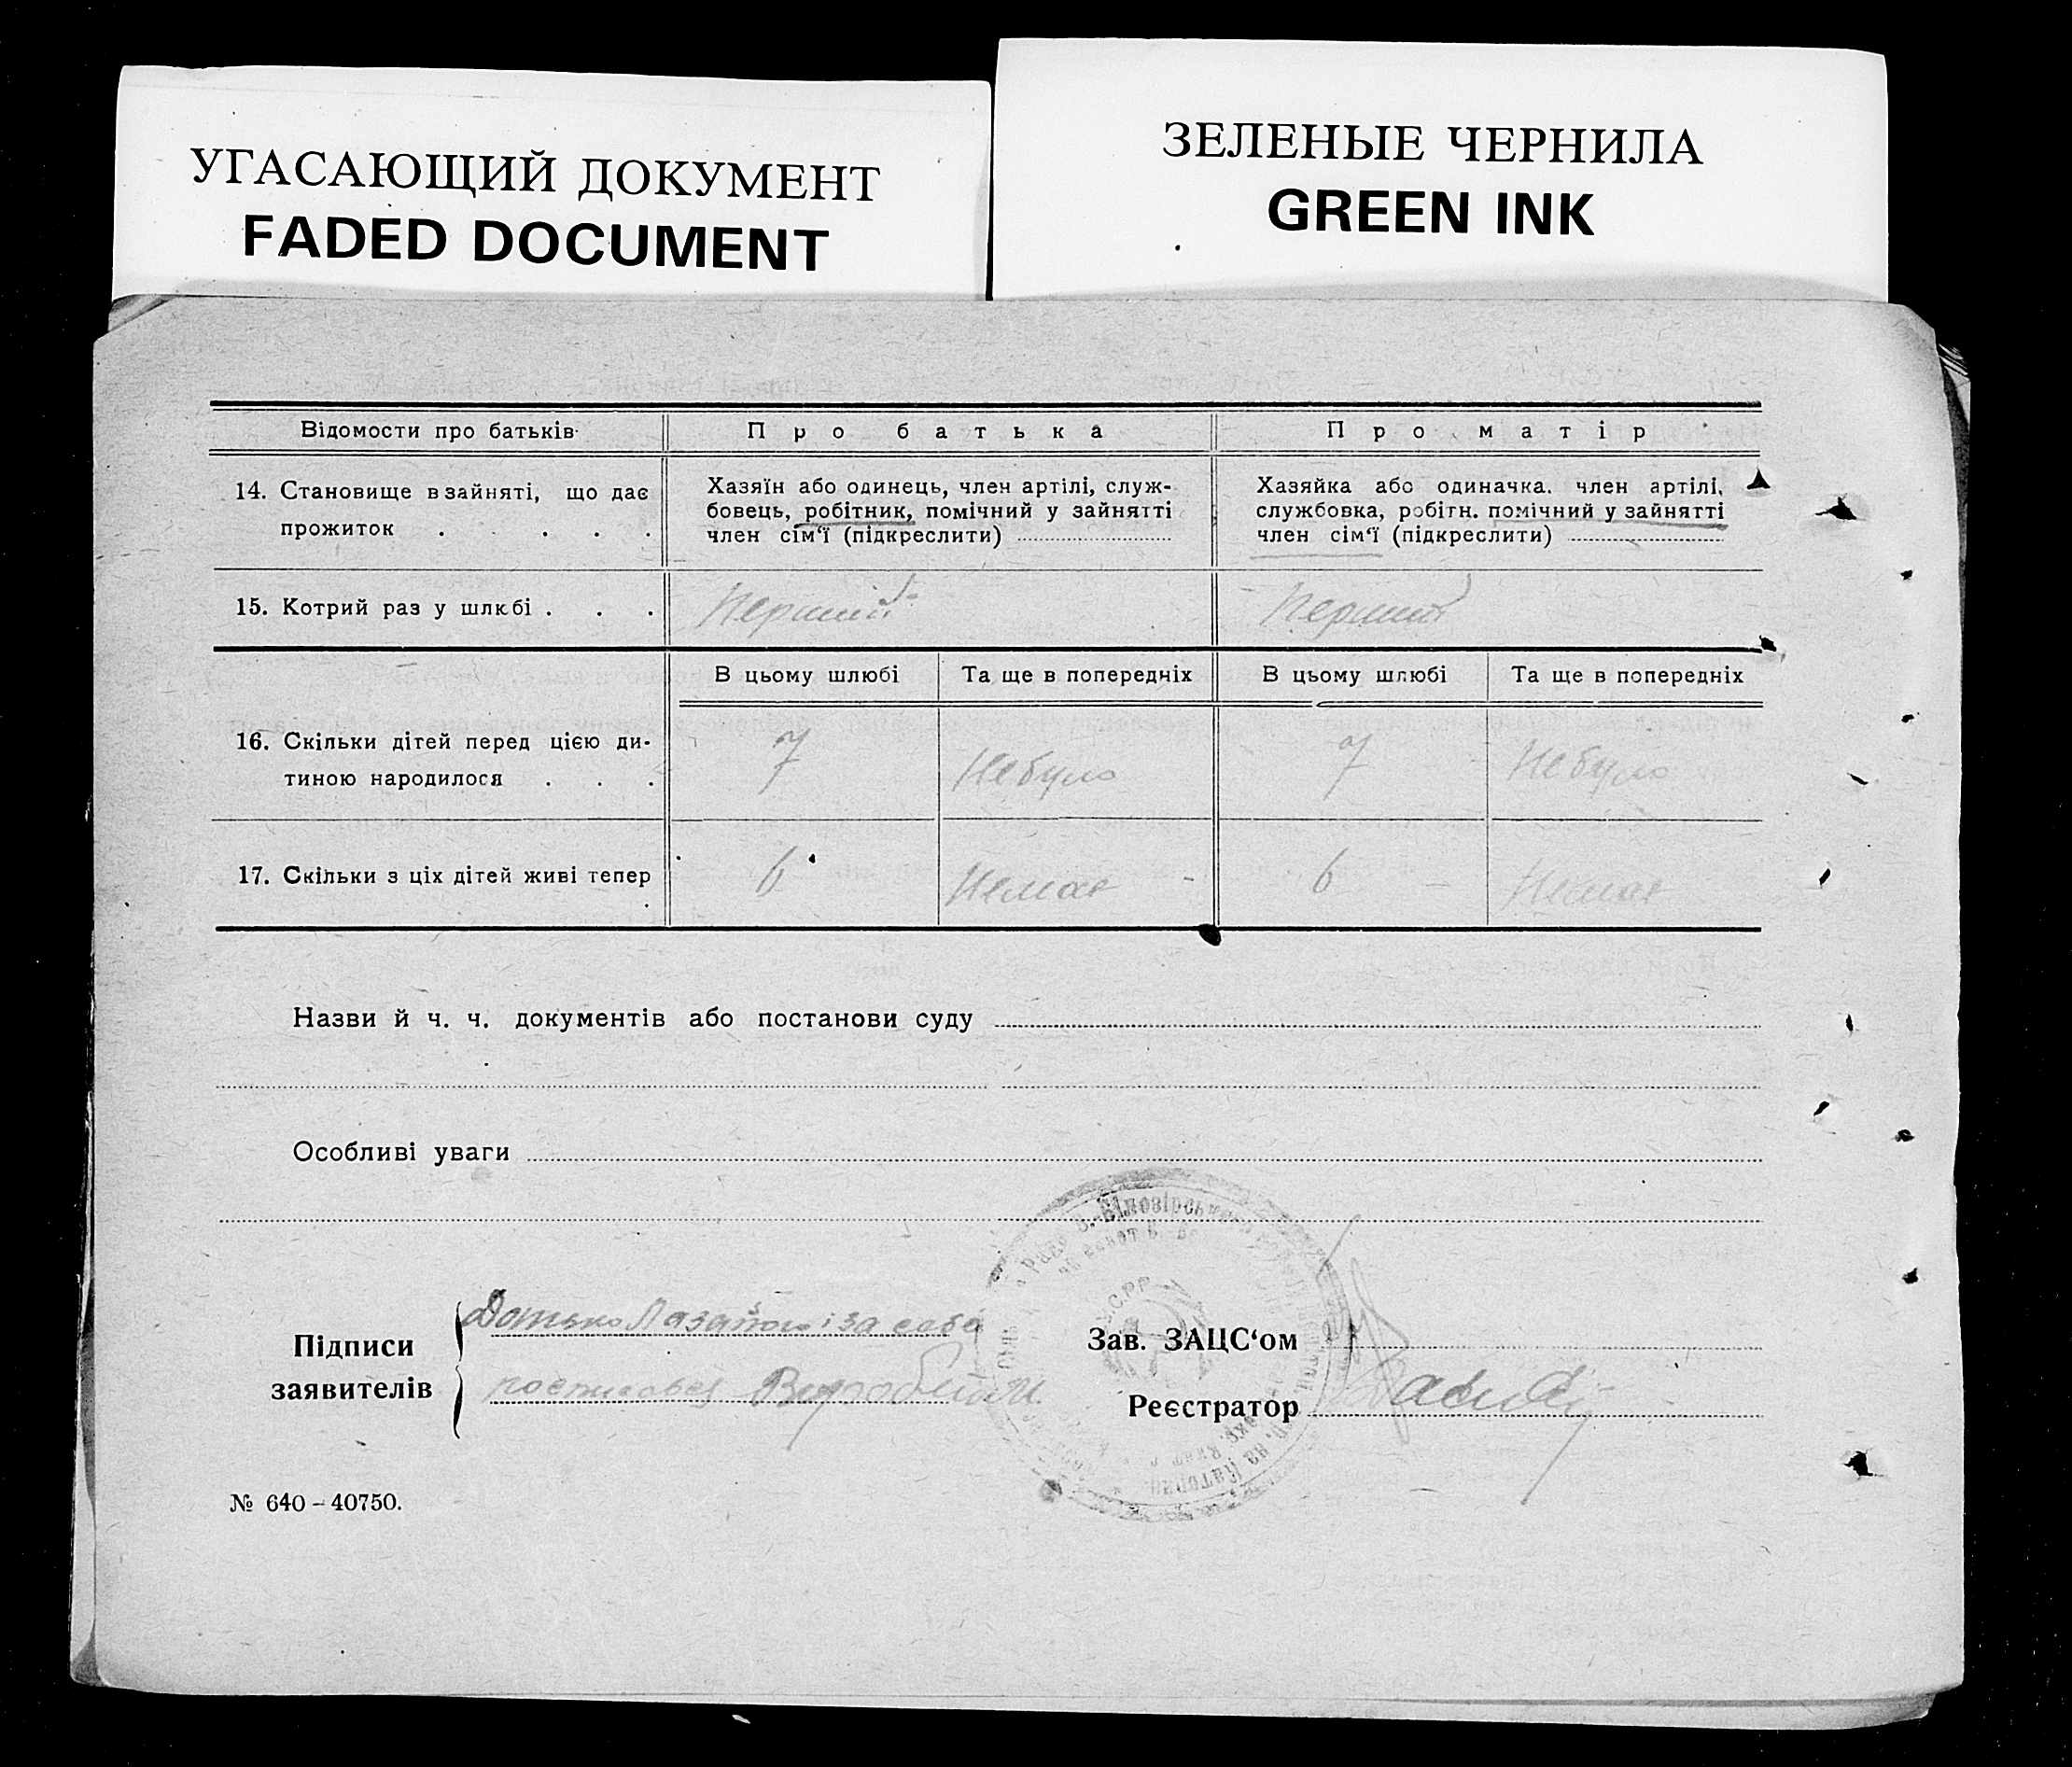 УГАСАЮЩИЙ ДОКУМЕНТ
FADED DOCUMENT
ЗЕЛЕНЫЕ ЧЕРНИЛА
GREEN INK
Відомости про батьків
Про батька
Про матір
14. Становище в зайняті, що дає
прожиток . . . .
Хазяїн або одинець, член артілі, служ-
бовець, робітник, помічний у зайнятті
член сім‘ї (підкреслити)
Хазяйка або одиначка. член артілі,
службовка, робітн. помічний у зайнятті
член сім‘ї (підкреслити)
15. Котрий раз у шлюбі . . .
Перший
Перший
В цьому шлюбі
Та ще в попередніх
В цьому шлюбі
Та ще в попередніх
16. Скільки дітей перед цією ди-
тиною народилося . . .
7
Небуло
7
Небуло
17. Скільки з ціх дітей живі тепер
6
Немає
6
Немає
Назви й ч. ч. документів або постанови суду
Особливі уваги
Підписи
заявителів
і за себе
Зав. ЗАЦС‘ом
Реєстратор
У.С.Р.Р.
№ 640 – 40750.